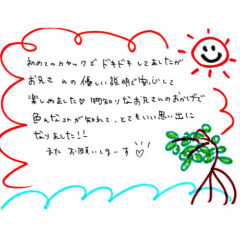 初めてのカヤックでドキドキしてましたが
お兄さんの優しい説明で安心して
楽しめました♡物知りなお兄さんのおかげで
色んなコトが知れて、とてもいい思い出に
なりました!!
また お願いしまーす♡